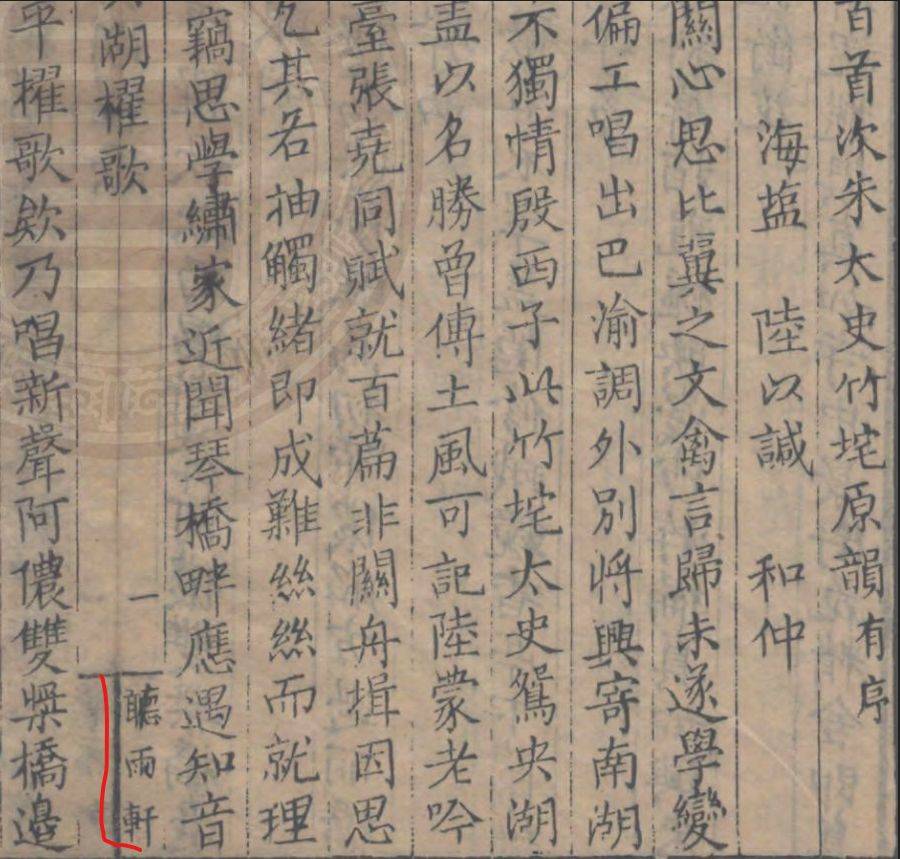 百首次朱太史竹垞原韻有序
海塩 陸以諴 和仲
關心思比翼之文禽言歸未遂學變
偏工唱出巴渝調外別將興寄南湖
不獨情殷西子此竹垞太史鴛央湖
盖以名勝曾傳土風可記陸蒙老吟
臺張堯同賦就百篇非關舟揖因思
乙其若抽觸緒即成難絲絲而就理
竊思學繡家近聞琴橋畔應遇知音
湖櫂歌 一 聽雨軒
平櫂歌欸乃唱新聲阿儂雙槳橋邊